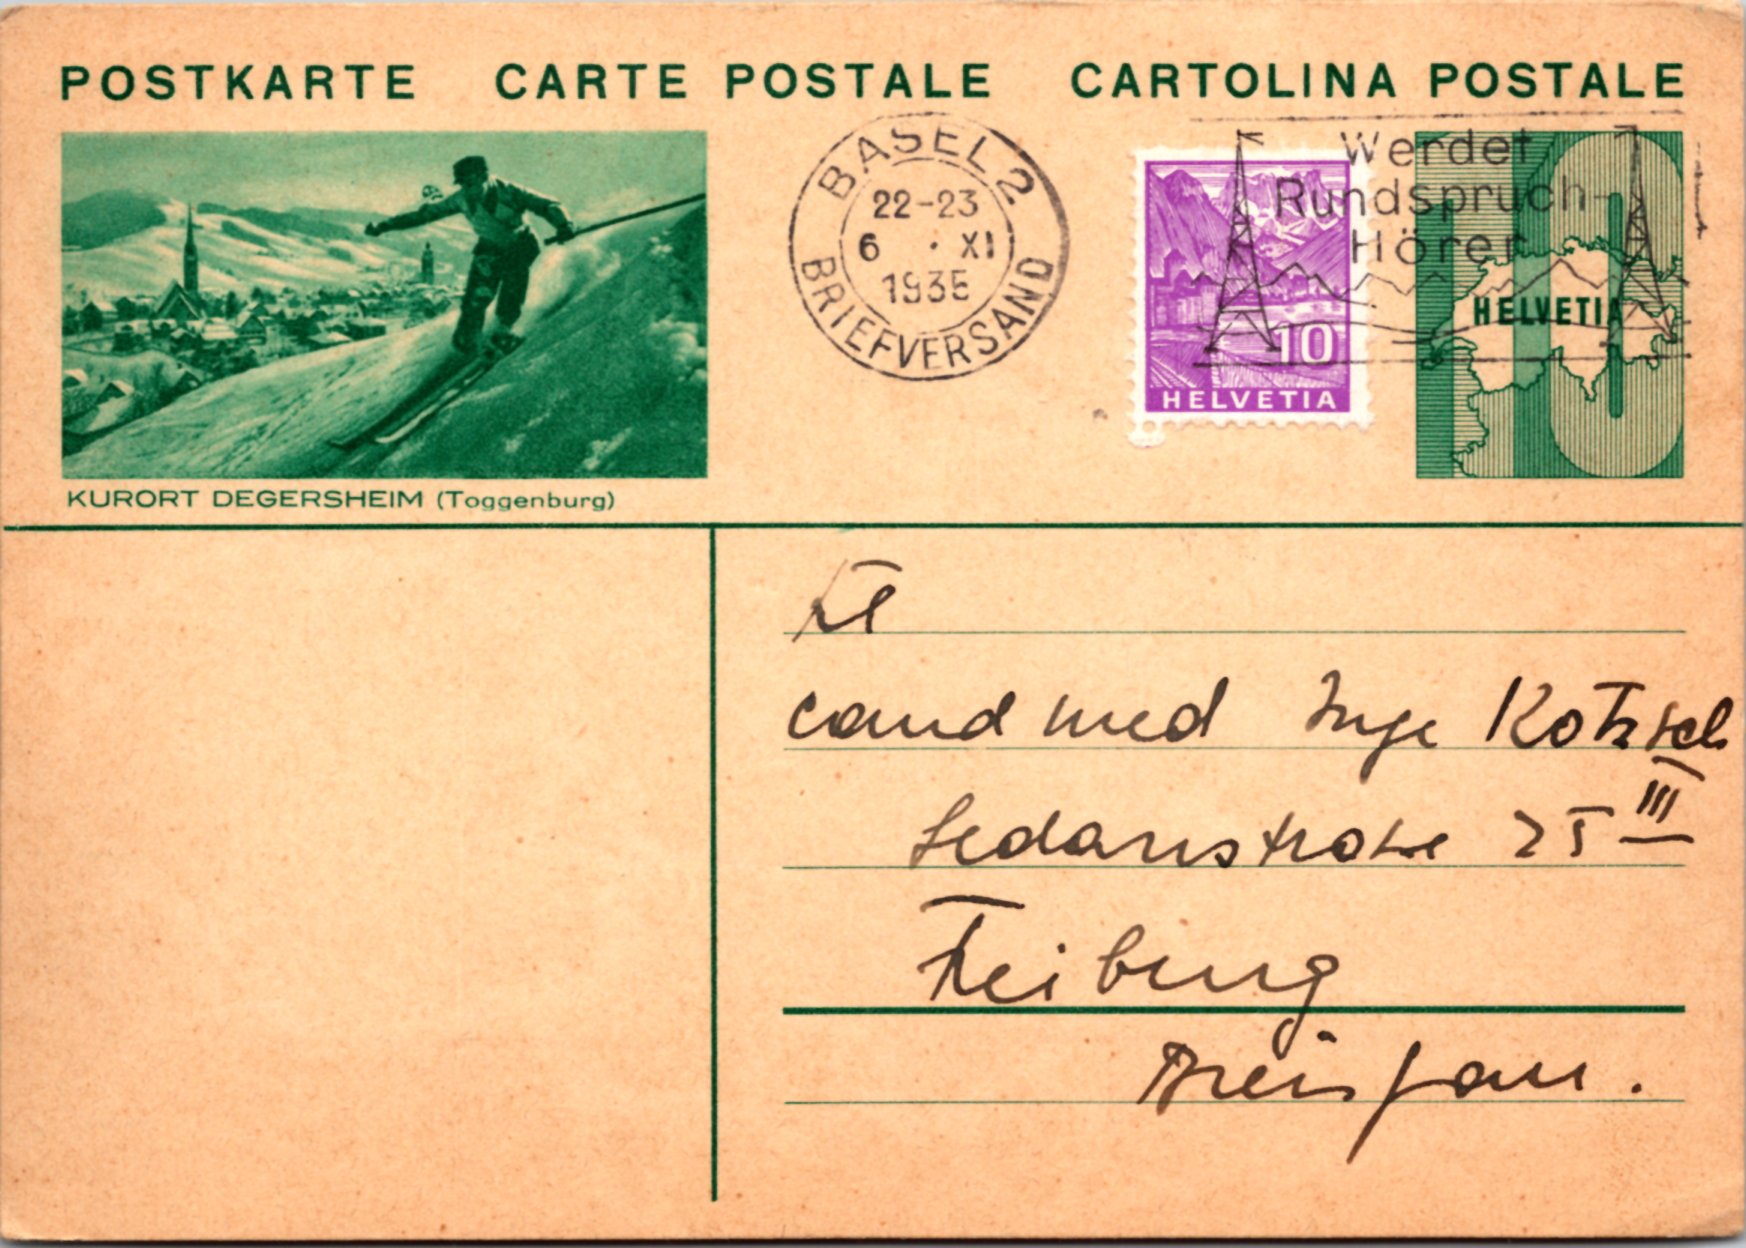 POSTKARTE CARTE POSTALE CARTOLINA POSTALE
BASEL 2
22-23
6 . XI
BRIEFVERSAND
Werdet
Rundspruch-
Hörer
10
HELVETIA
10
HELVETIA
KURORT DEGERSHEIM (Toggenburg)
Frl
cand med Inge Kotzsch
Sedanstrasse 25 III
Freiburg
Breisgau.